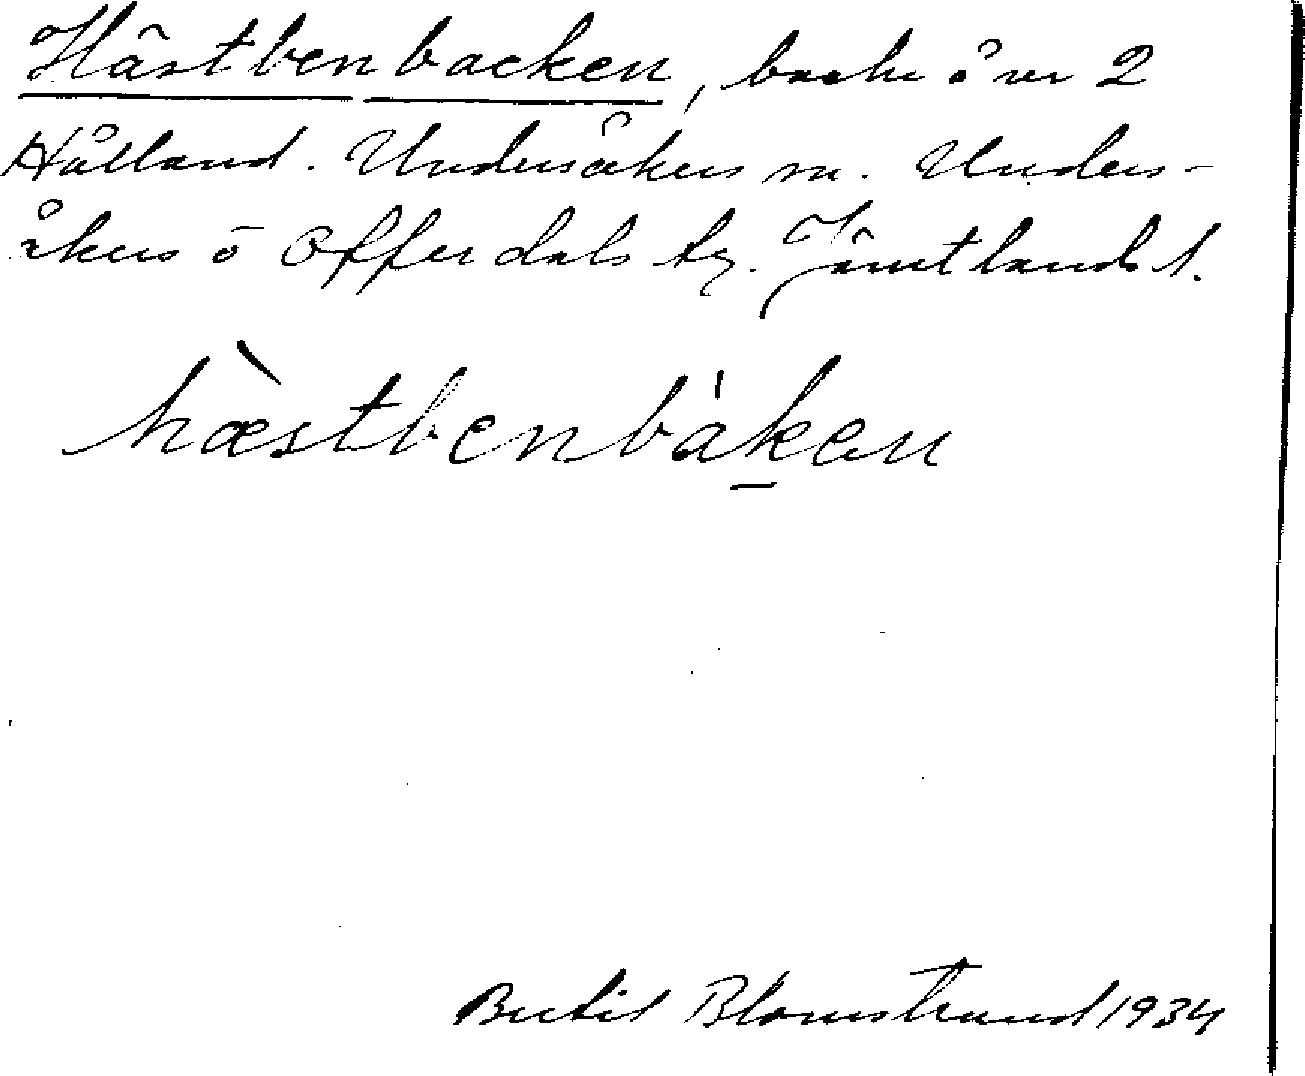 Hästbenbacken, backe över 2
Hålland. Undersåkers sn. Unders-
åkers o Offerdals tg. Jämtlands l.
hæ̀stbenbàḵen
Bertil Blomstrand 1934